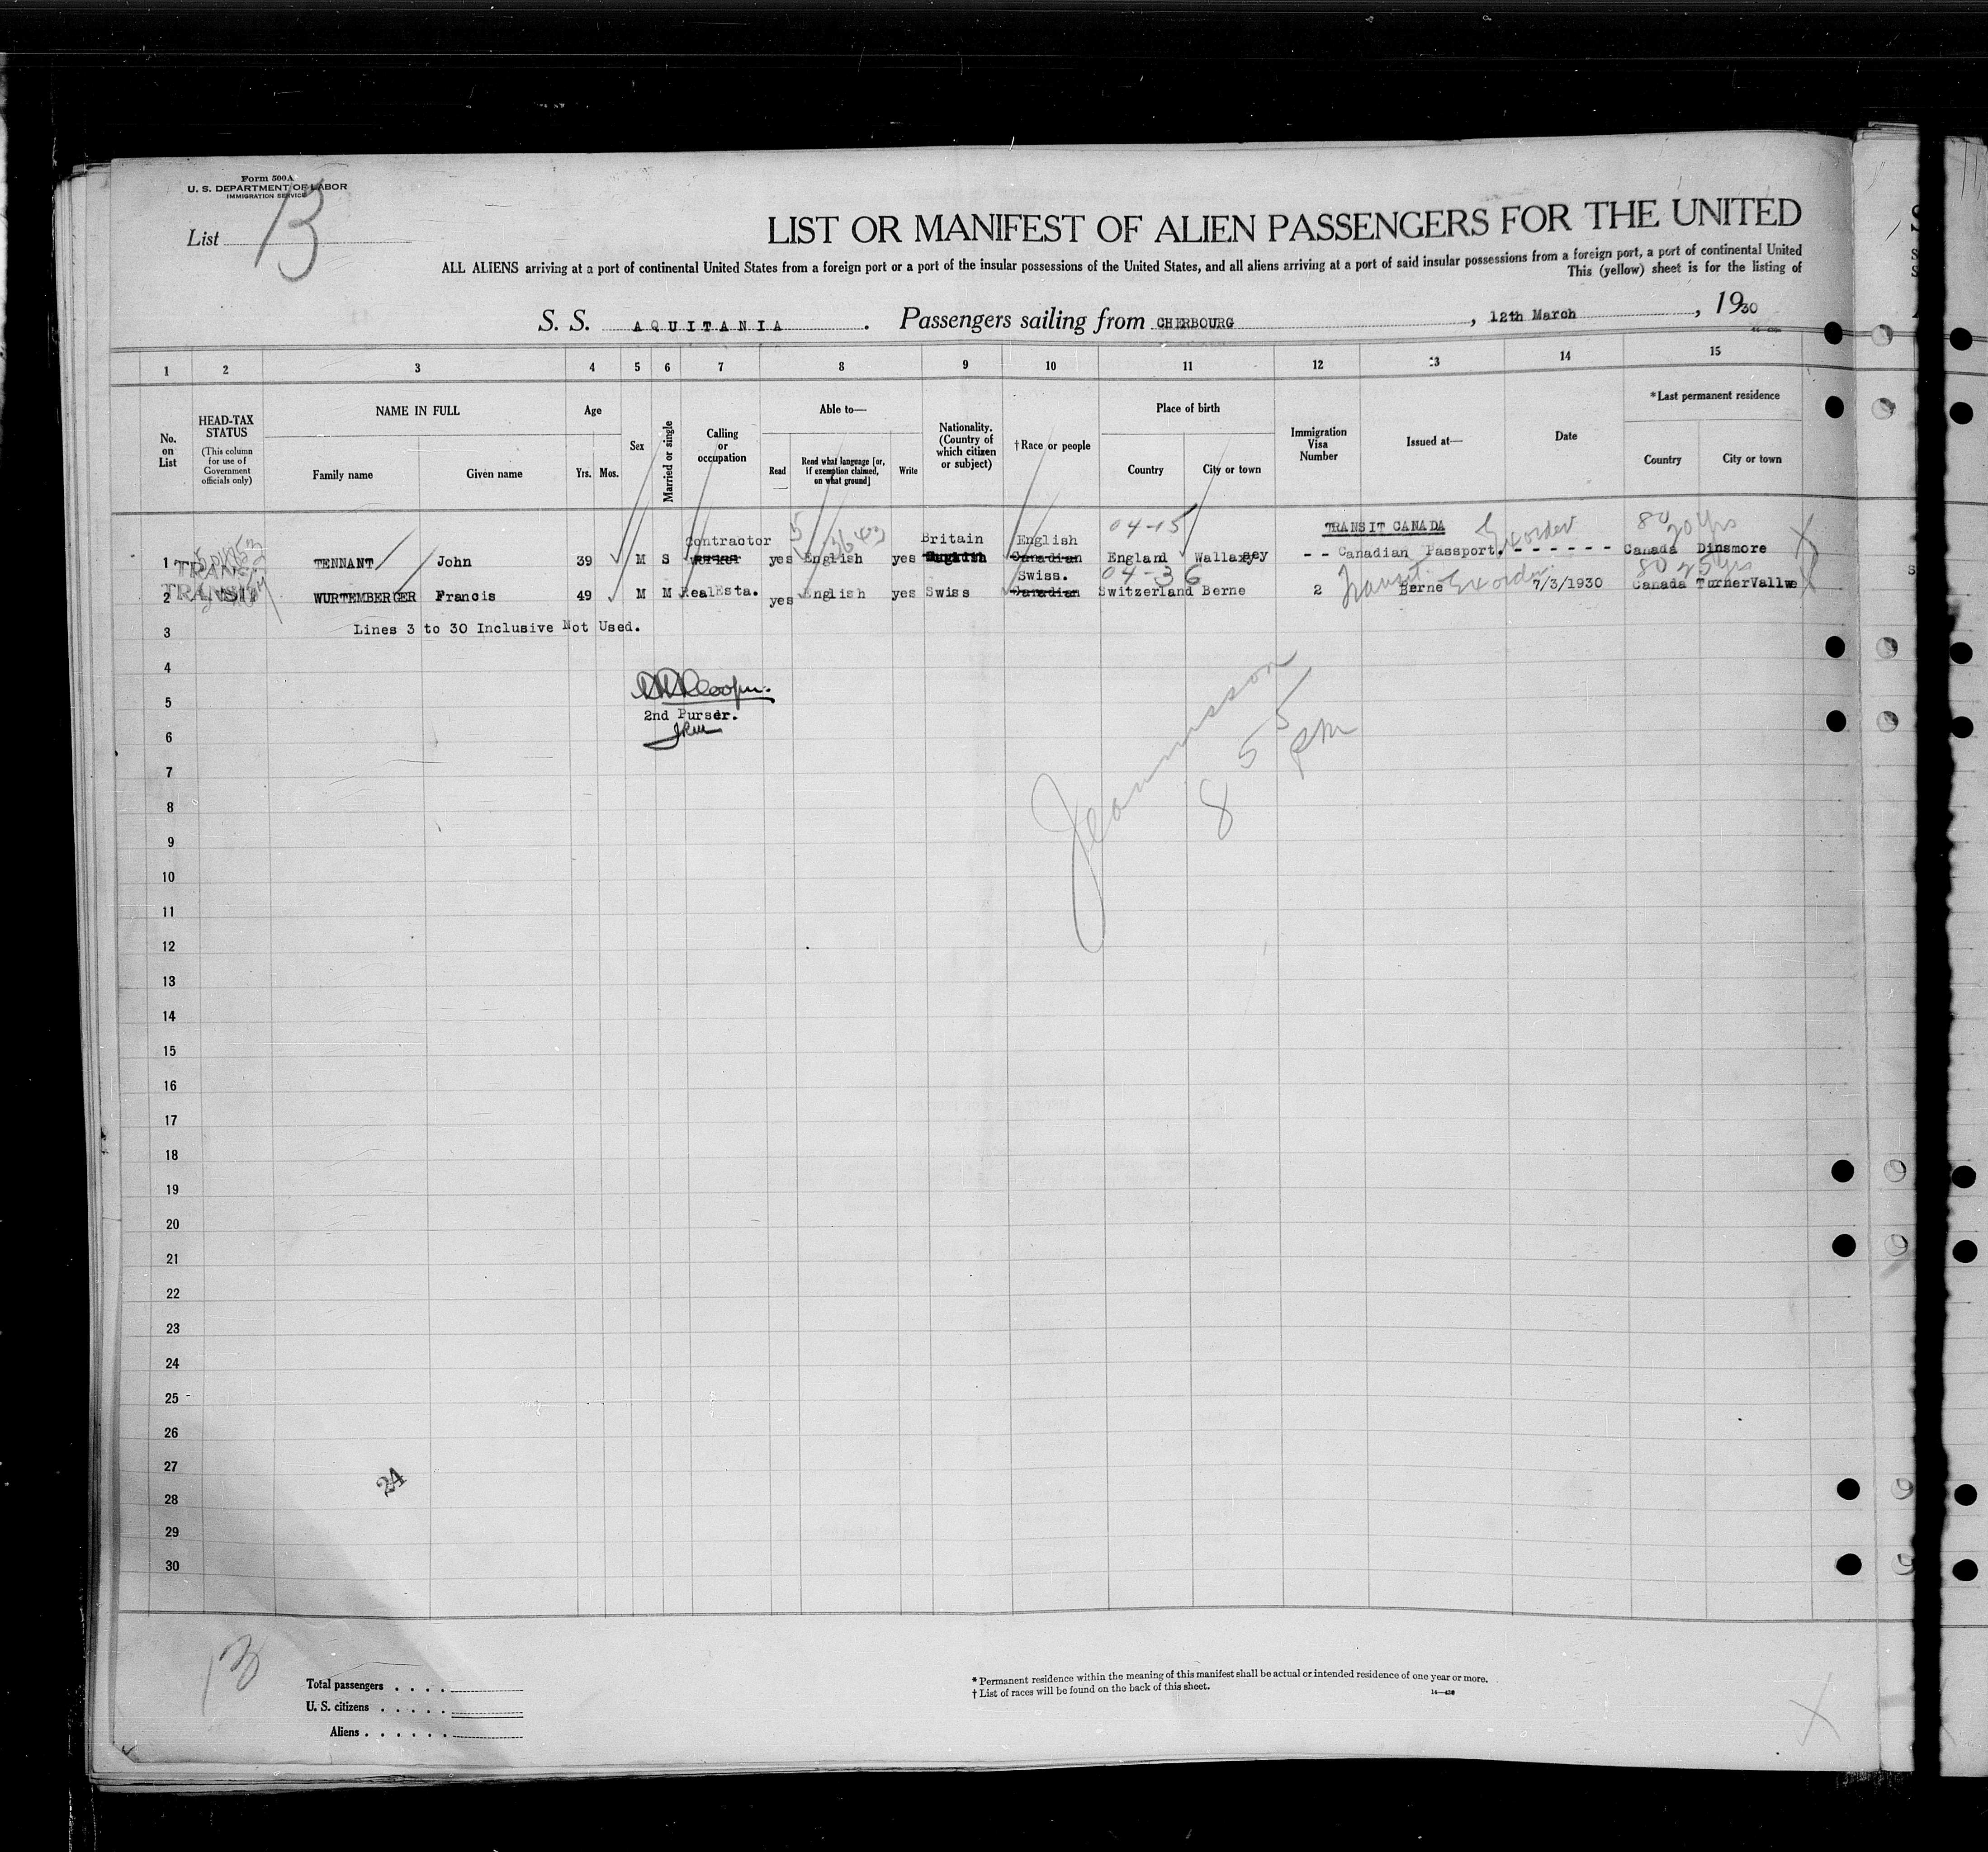 Form 500A
U. S. DEPARTMENT OF LABOR
IMMIGRATION SERVICE
List 13
LIST OR MANIFEST OF ALIEN PASSENGERS FOR THE UNITED
ALL ALIENS arriving at a port of continental United States from a foreign port or a port of the insular possessions of the United States, and all aliens arriving at a port of said insular possessions from a foreign port, a port of continental United
This (yellow) sheet is for the listing of
S. S. AQUITANIA. Passengers sailing from CHERBOURG, 12th March, 1930
1 2 3 4 5 6 7 8 9 10 11 12 13 14 15
No. on List
HEAD-TAX STATUS
(This column for use of Government officials only)
NAME IN FULL
Family name Given name
Age
Yrs. Mos.
Sex
Married or single
Calling or occupation
Able to—
Read
Read what language [or, if exemption claimed, on what ground]
Write
Nationality. (Country of which citizen or subject)
†Race or people
Place of birth
Country City or town
Immigration Visa Number
Issued at—
Date
*Last permanent residence
Country City or town
04-15 TRANSIT CANADA 80 20 yrs
Contractor Britain English
1 TRANSIT TENNANT John 39 M S yes English yes Canadian England Wallasey - - Canadian Passport. - - - - - - Canada Dinsmore
Swiss. 04-36 Transit 80 25 yrs
2 TRANSIT WURTEMBERGER Francis 49 M M RealEsta. yes English yes Swiss Canadian Switzerland Berne 2 Berne 7/3/1930 Canada TurnerVallwe
3 Lines 3 to 30 Inclusive Not Used.
4
5
2nd Purser.
6
7
8
9
10
11
12
13
14
15
16
17
18
19
20
21
22
23
24
25
26
27
28
29
30
8 55 pm
24
13
Total passengers . . . .
U. S. citizens . . . . .
Aliens . . . . . .
* Permanent residence within the meaning of this manifest shall be actual or intended residence of one year or more.
† List of races will be found on the back of this sheet.